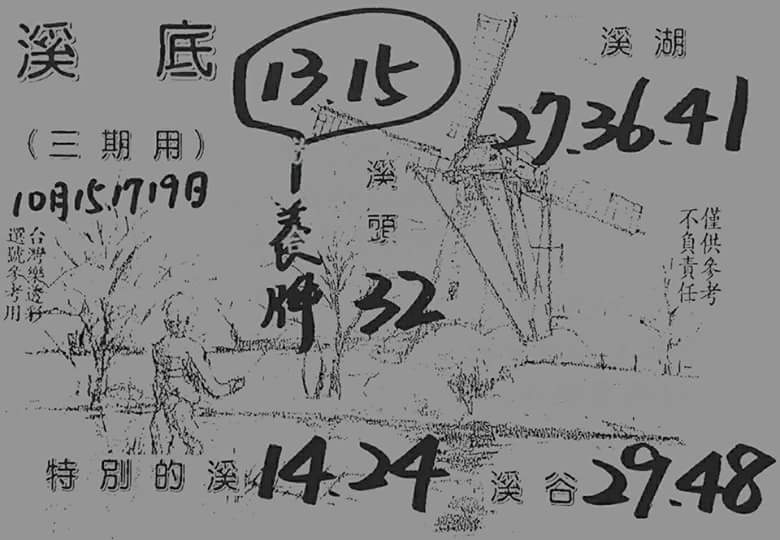 溪底
13.15
溪湖
27.36.41
(三期用)
10月15.17.19日
養牌
溪頭
32
僅供參考
不負責任
台灣樂透彩
選號參考用
特別的溪 14.24
溪谷 29.48